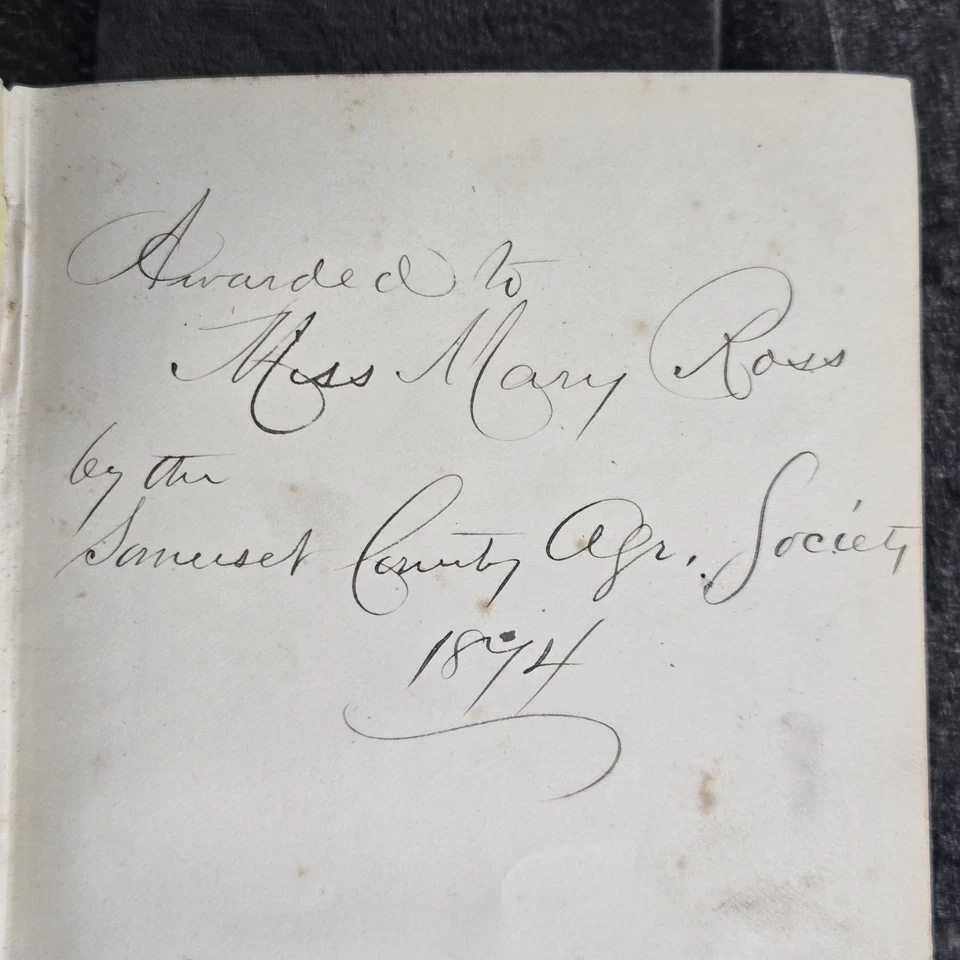 Awarded to
Miss Mary Ross
by the
Somerset County Agr. Society
1874